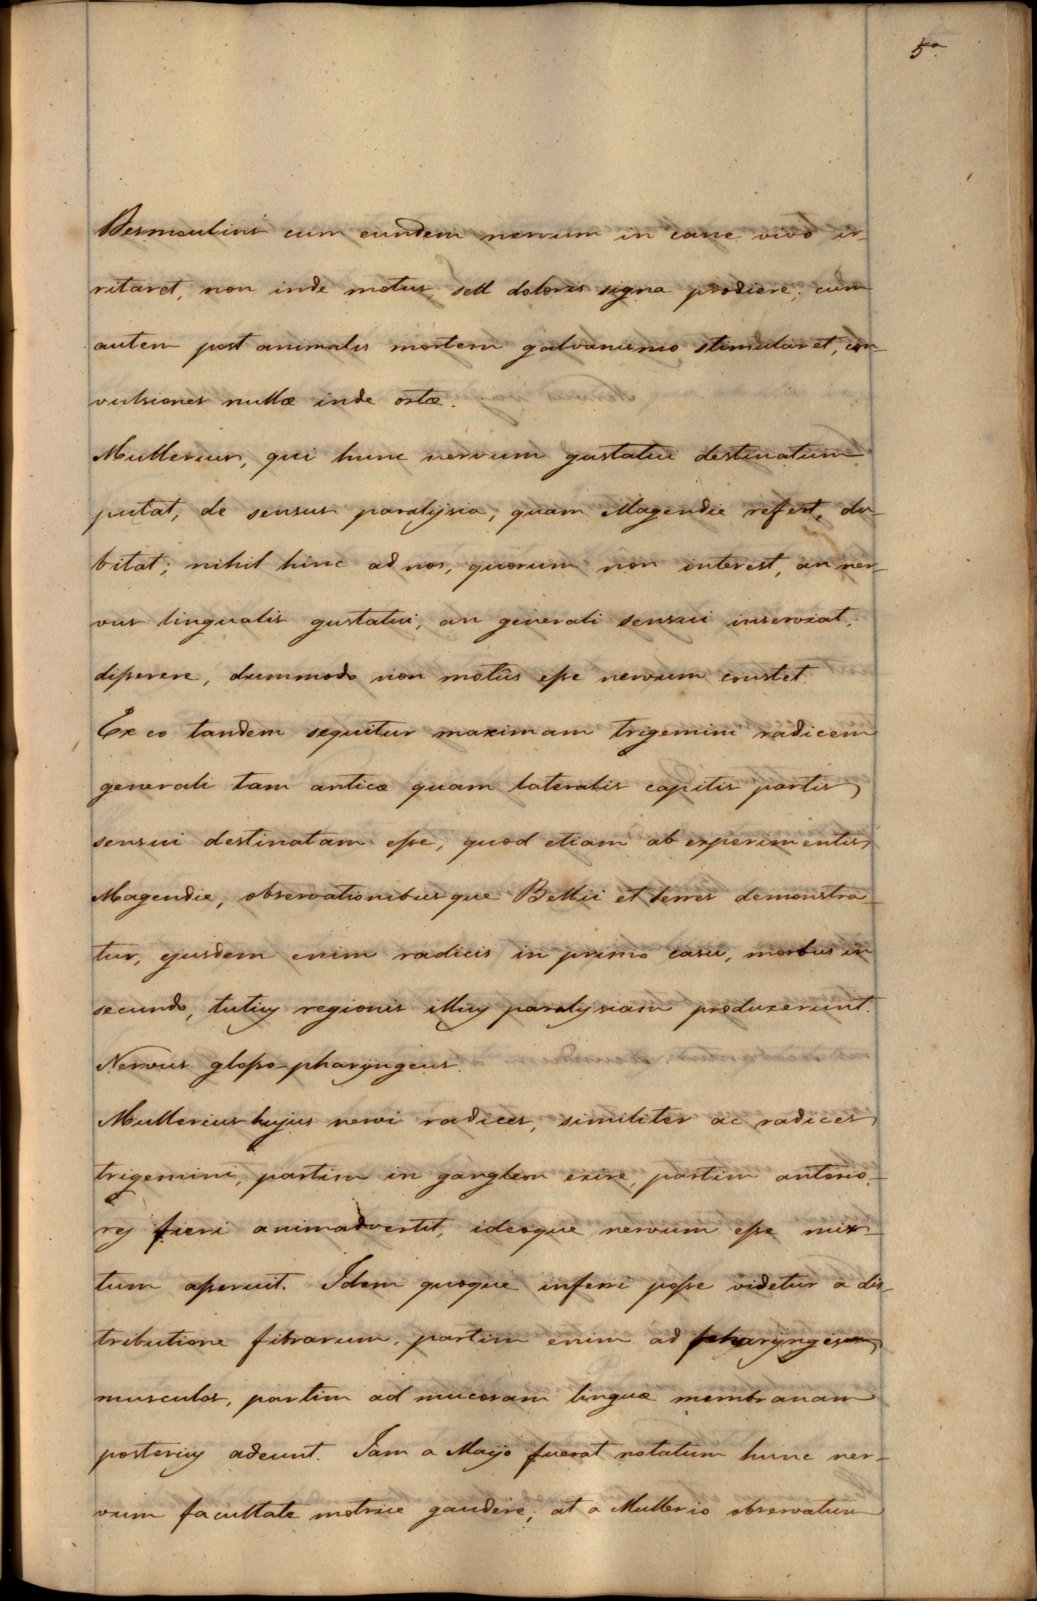 5a.
Desmoulins cum eundem nervum in cane vivo ir-
ritaret, non inde motus, sed doloris signa prodiere; cum
autem post animalis mortem galvanismo stimularet, con-
vulsiones nullæ inde ortæ.
Mullerius, qui hunc nervum gustatui destinatum
putat, de sensus paralysia, quam Magendie refert, du-
bitat; nihil hinc ad nos, quorum non interest, an ner-
vus lingualis gustatui, an generali sensui inserviat,
disserere, dummodo non motûs esse nervum constet.
Ex eo tandem sequitur maximam trigemini radicem
generali tam anticæ quam lateralis capitis partis
sensui destinatam esse, quod etiam ab experimentis
Magendie, observationibusque Bellii et Serres demonstra-
tur, ejusdem enim radicis in primo casu, morbus in
secundo, totius regionis illius paralysiam produxerunt.
Nervus glosso-pharyngeus.
Mullerius hujus nervi radices, similiter ac radices
trigemini, partim in ganglion exire, partim anterio-
res fieri animadvertit, ideoque nervum esse mix-
tum asseruit. Idem quoque inferri posse videtur a dis-
tributione fibrarum, partim enim ad pharyngeum
musculos, partim ad mucosam linguæ membranam
posterius adeunt. Jam a Mayo fuerat notatum hunc ner-
vum facultate motrice gaudere; at a Mullerio observatum